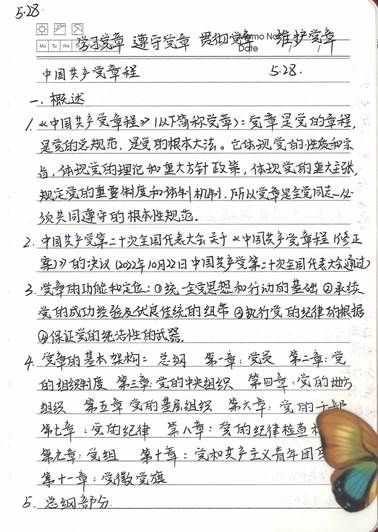 5.28.
Memo No.
Mo Tu We
Date
学习党章 遵守党章 贯彻党章 维护党章
中国共产党章程 5.28.
一.概述
1.《中国共产党章程》(以下简称党章):党章是党的章程,
是党的总规范,是党的根本大法。它体现党的性质和宗
旨,体现党的理论和重大方针政策,体现党的重大主张,
规定党的重要制度和体制机制,所以党章是全党同志必
须共同遵守的根本性规范.
2.中国共产党第二十次全国代表大会关于《中国共产党章程(修正
案)》的决议(2022年10月22日中国共产党第二十次全国代表大会通过)
3.党章的功能和定位:①统一全党思想和行动的基础 ②承续
党的成功经验及优良传统的纽带 ③执行党的纪律的根据
④保证党的统治性的武器.
4.党章的基本架构:总纲 第一章:党员 第二章:党
的组织制度 第三章:党的中央组织 第四章:党的地方
组织 第五章 党的基层组织 第六章:党的干部
第七章:党的纪律 第八章:党的纪律检查
第九章:党组 第十章:党和共产主义青年团
第十一章:党徽党旗
5.总纲部分.